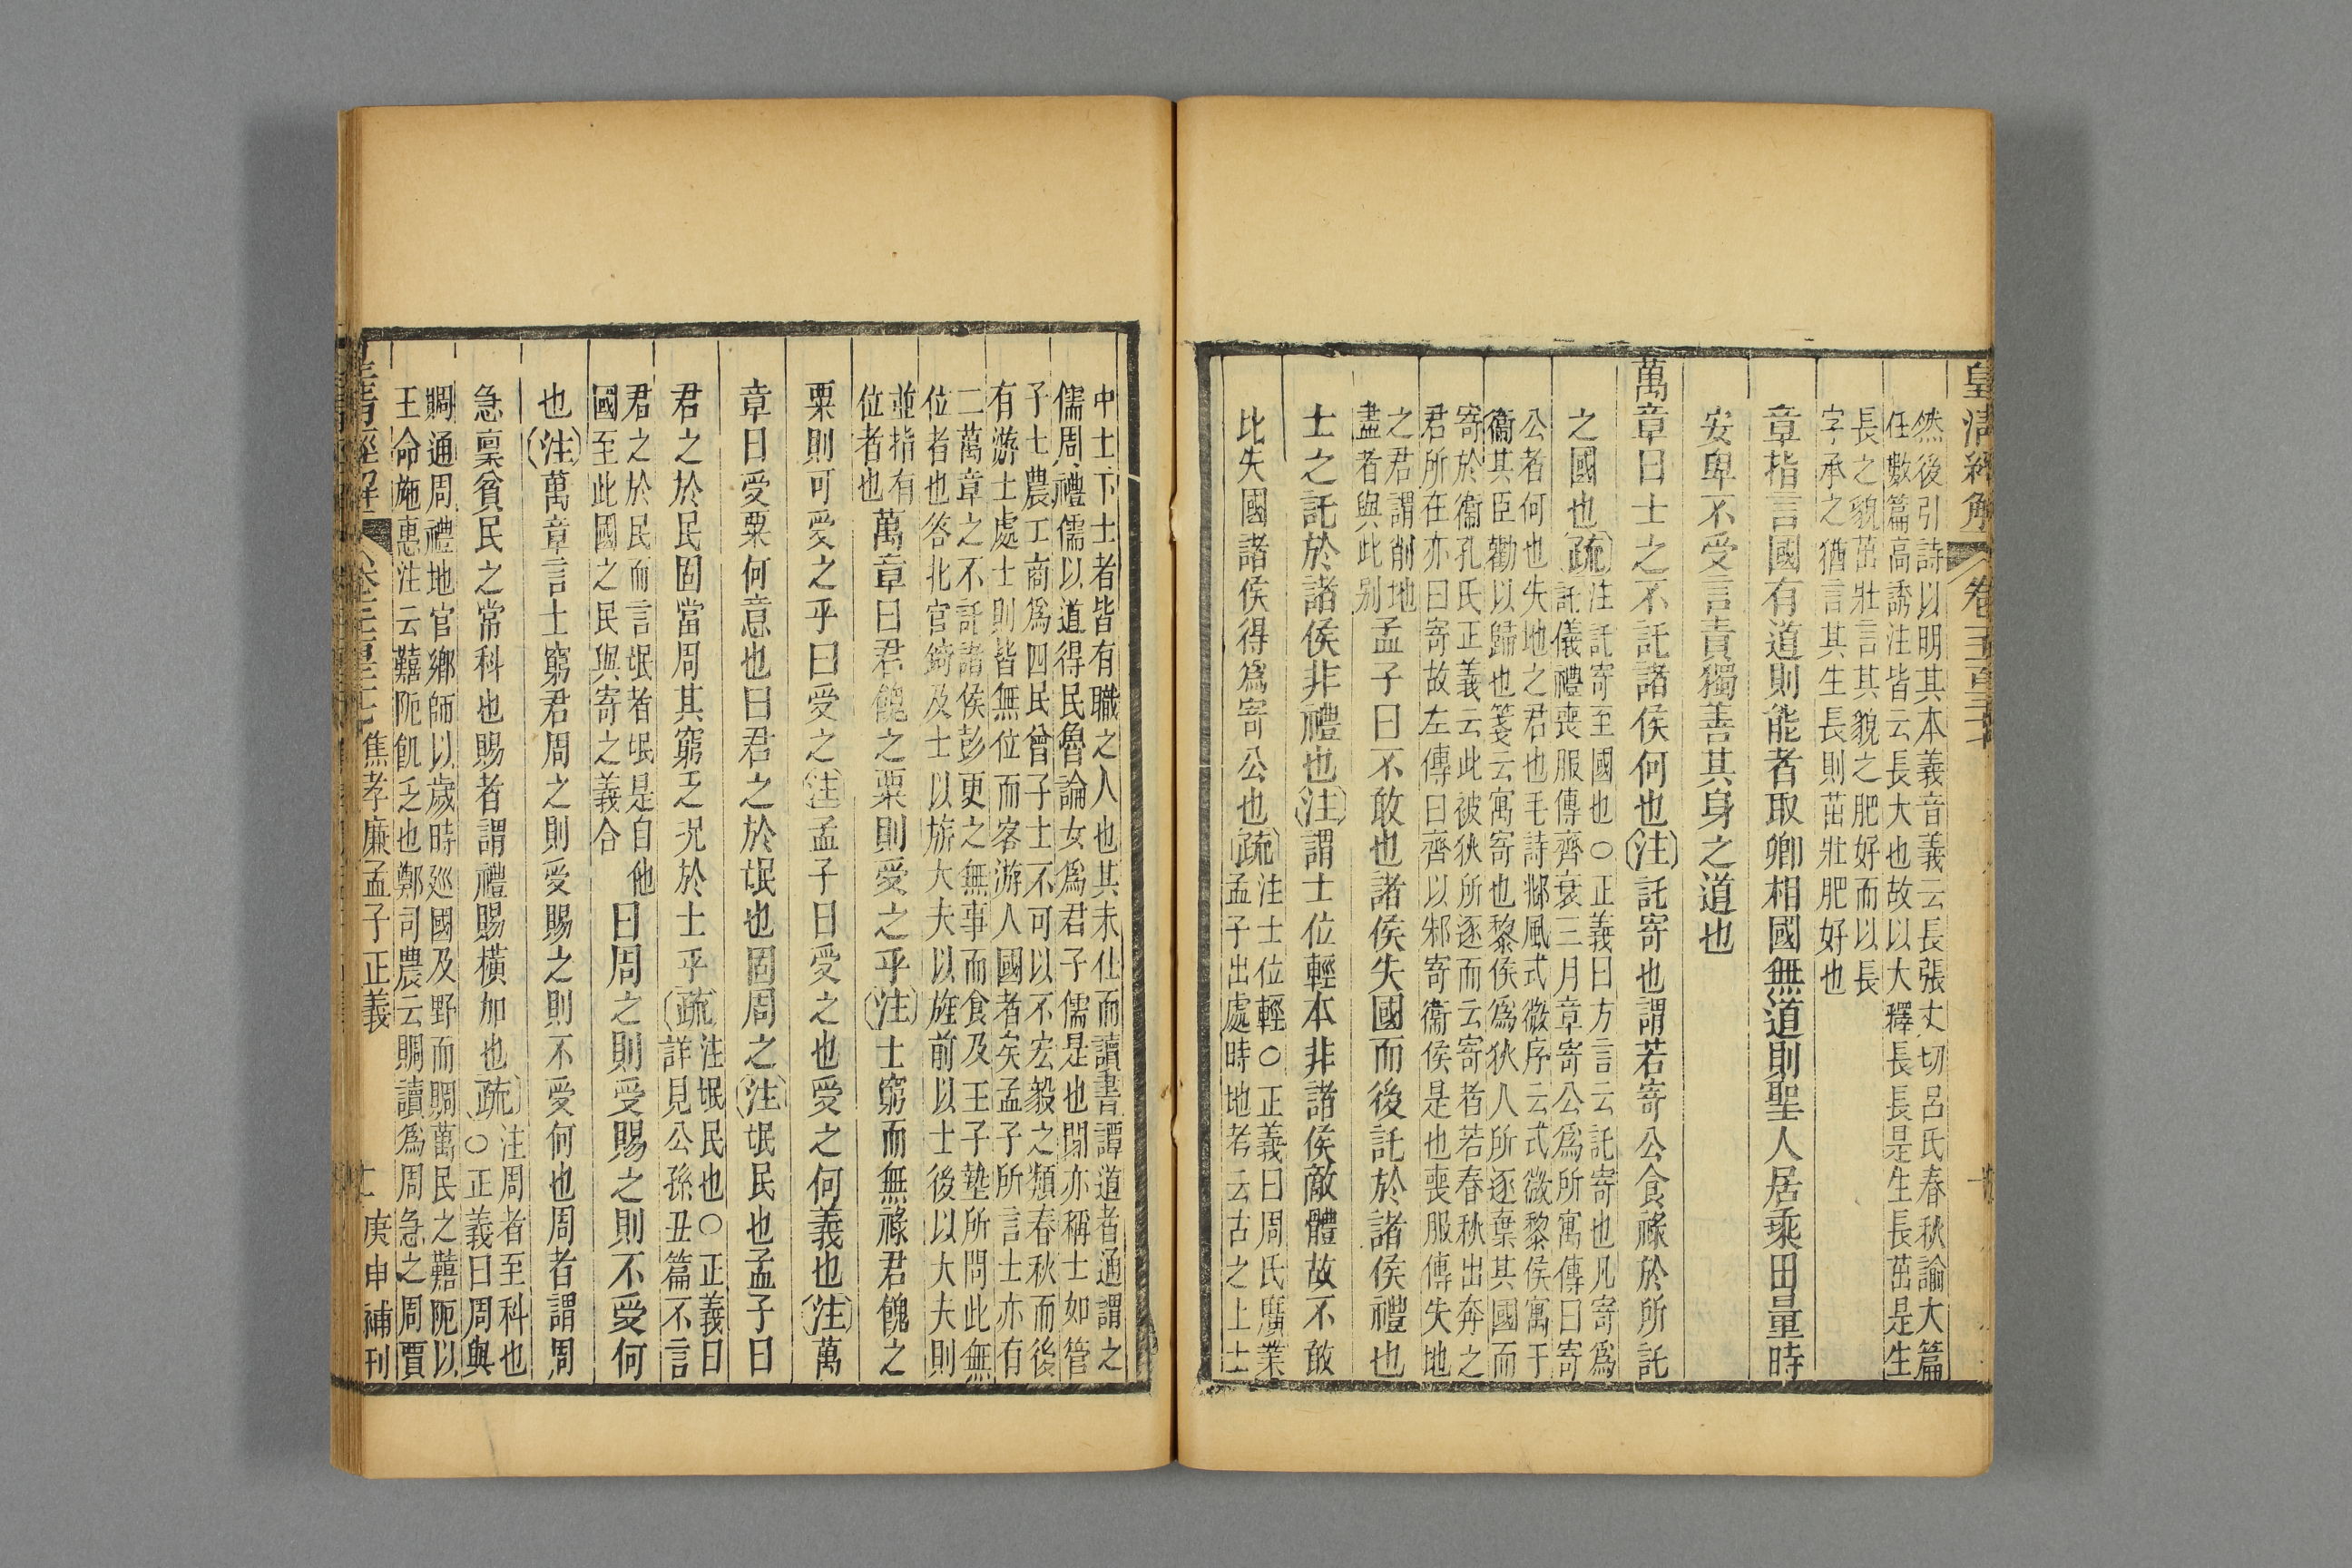 皇清經解
卷五百三十
然後引詩以明其本義音義云長張丈切呂氏春秋諭大篇
任數篇高誘注皆云長大也故以大釋長長是生長茁是生
長之貌茁壯言其貌之肥好而以長
字承之猶言其生長則茁壯肥好也
章指言國有道則能者取卿相國無道則聖人居乘田量時
安卑不受言責獨善其身之道也
萬章曰士之不託諸侯何也注託寄也謂若寄公食祿於所託
之國也疏
注託寄至國也○正義曰方言云託寄也凡寄爲
託儀禮喪服傳齊衰三月章寄公爲所寓傳曰寄
公者何也失地之君也毛詩邶風式微序云式微黎侯寓于
衞其臣勸以歸也箋云寓寄也黎侯爲狄人所逐棄其國而
寄於衞孔氏正義云此被狄所逐而云寄者若春秋出奔之
君所在亦曰寄故左傳曰齊以郲寄衞侯是也喪服傳失地
之君謂削地
盡者與此别
孟子曰不敢也諸侯失國而後託於諸侯禮也
士之託於諸侯非禮也注謂士位輕本非諸侯敵體故不敢
比失國諸侯得爲寄公也疏
注士位輕○正義曰周氏廣業
孟子出處時地考云古之上士
中士下士者皆有職之人也其未仕而讀書譚道者通謂之
儒周禮儒以道得民魯論女爲君子儒是也閒亦稱士如管
子士農工商爲四民曾子士不可以不宏毅之類春秋而後
有游士處士則皆無位而客游人國者矣孟子所言士亦有
二萬章之不託諸侯彭更之無事而食及王子墊所問此無
位者也答北官錡及士以旂大夫以旌前以士後以大夫則
並指有
位者也
萬章曰君餽之粟則受之乎注士窮而無祿君餽之
粟則可受之乎曰受之注孟子曰受之也受之何義也注萬
章曰受粟何意也曰君之於氓也固周之注氓民也孟子曰
君之於民固當周其窮乏況於士乎疏
注氓民也○正義曰
詳見公孫丑篇不言
君之於民而言氓者氓是自他
國至此國之民與寄之義合
曰周之則受賜之則不受何
也注萬章言士窮君周之則受賜之則不受何也周者謂周
急稟貧民之常科也賜者謂禮賜橫加也疏
注周者至科也
○正義曰周與
賙通周禮地官鄉師以歲時巡國及野而賙萬民之囏阨以
王命施惠注云囏阨飢乏也鄭司農云賙讀爲周急之周賈
皇清經解
焦孝廉孟子正義
庚申補刊